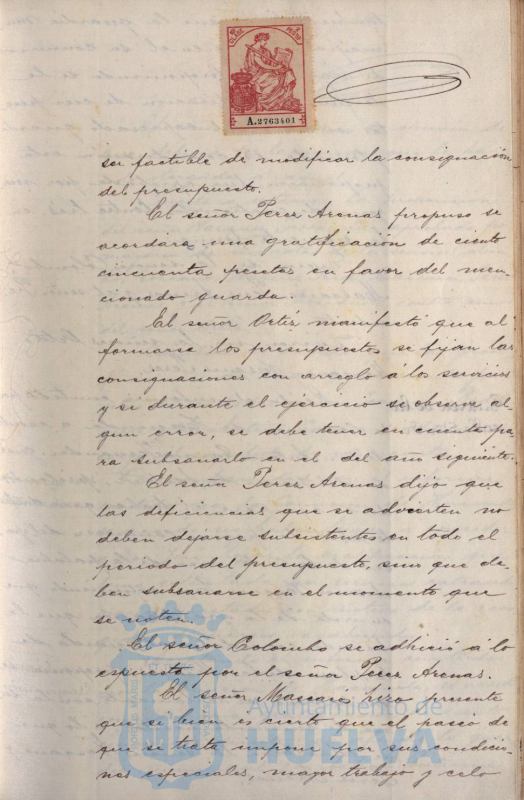 A.2763401
ser factible de modificar la consignación
del presupuesto.
El señor Perez Arenas propuso se
acordara una gratificación de ciento
cincuenta pesetas en favor del men-
cionado guarda.
El señor Ortiz manifestó que al
formarse los presupuestos se fijan las
consignaciones con arreglo á los servicios
y si durante el ejercicio se observa al
gun error, se debe tener en cuenta pa
ra subsanarlo en el del año siguiente.
El señor Perez Arenas dijo que
las deficiencias que se advierten no
deben dejarse subsistentes en todo el
periodo del presupuesto, sino que de-
ben subsanarse en el momento que
se noten.
El señor Colombo se adhirió á lo
expuesto por el señor Perez Arenas.
El señor Mascaró hizo presente
que si bien es cierto que el paseo de
que se trata impone por sus condicio-
nes especiales, mayor trabajo y celo
Ayuntamiento de
HUELVA